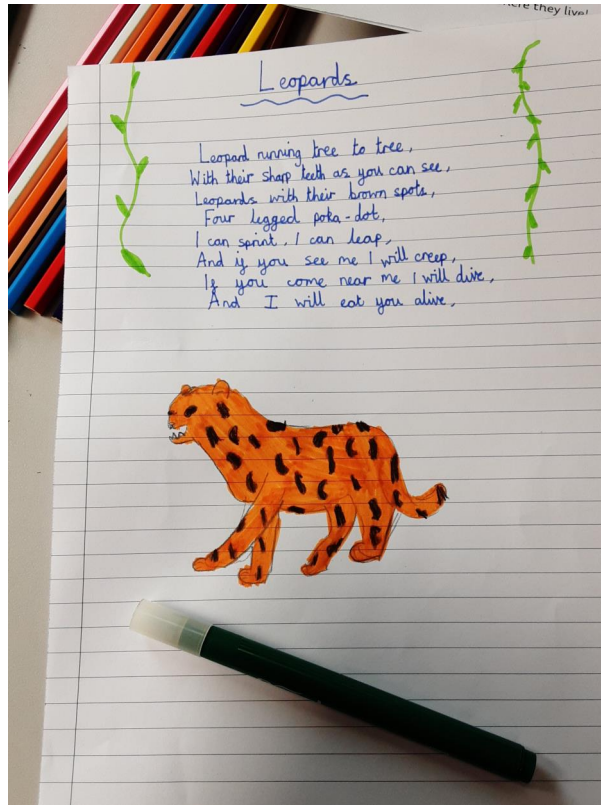 here they live!
Leopards
Leopard running tree to tree,
With their sharp teeth as you can see,
Leopards with their brown spots,
Four legged poka-dot,
I can sprint, I can leap,
And if you see me I will creep,
If you come near me I will dive,
And I will eat you alive,